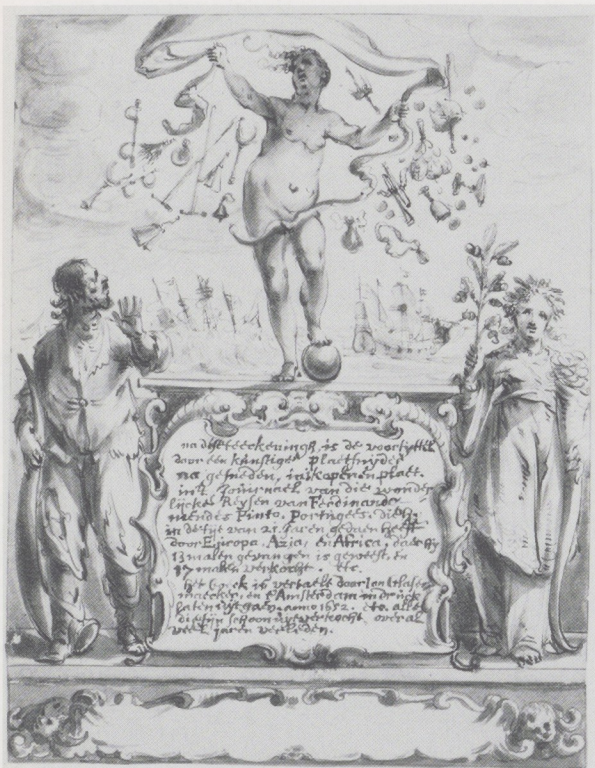 na dese teeckeningh, is de voortyttel
door een kunstigen plaetsnyder
na gesneden, in koperen plaet.
int Journael van die wonder
lijcke Reysen van Ferdinando
mendes Pinto. Portugees. Die hy
in de tyt van 21. Jaren gedaen heeft
door Europa. Azia, en Africa. daer hy
13 malen gevangen is geweest, en
17 malen verkocht. etc.
het is vertaelt door Jan
maecker, en t'Amsterdam in druck
laten uyt gaen. anno 1652. etc. alle
die sijn schoon uyt verkocht, over al
veel jaren verleden.